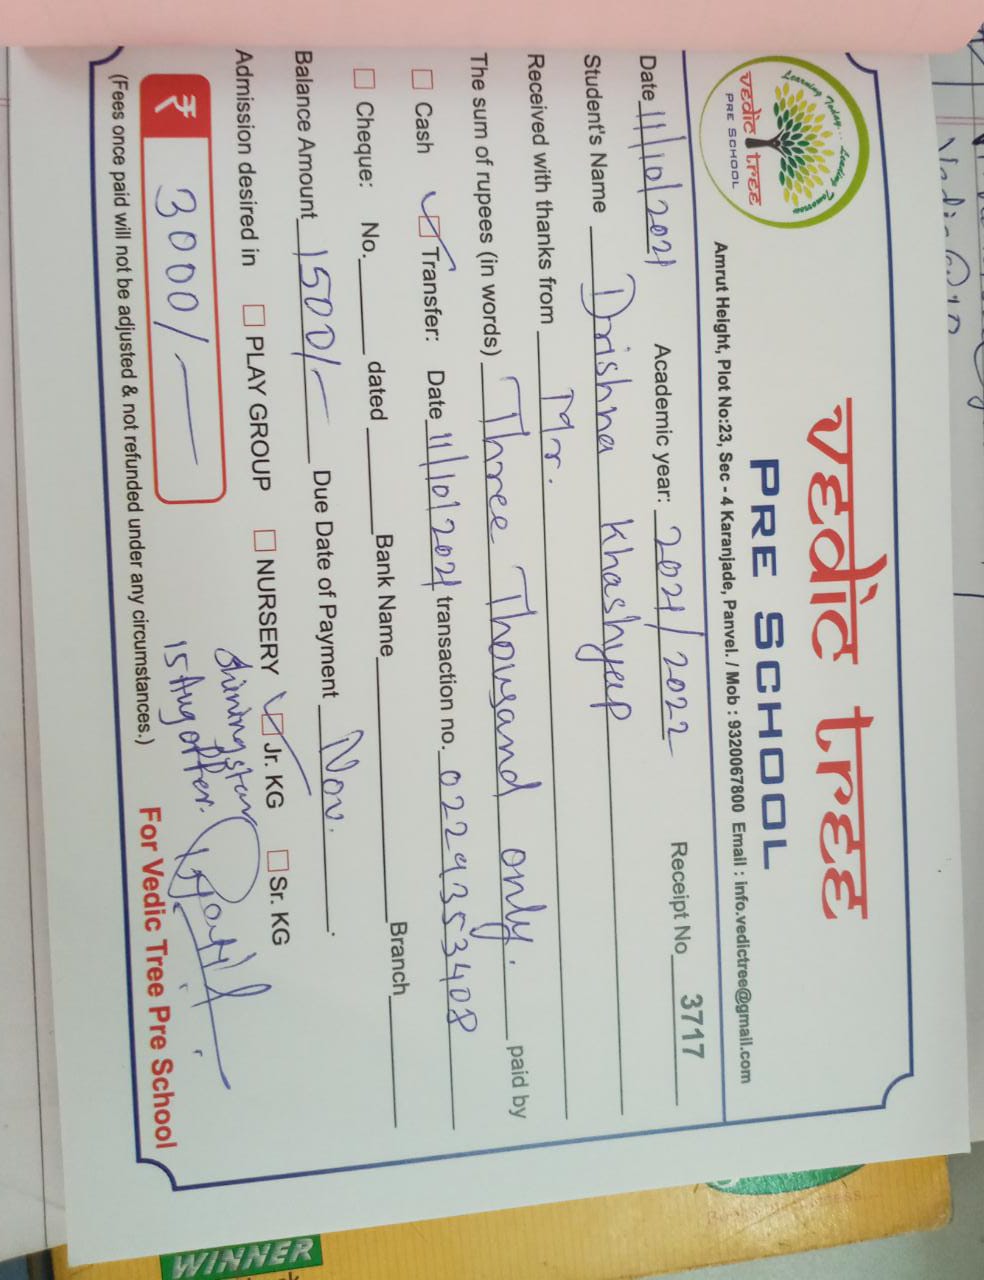 Learning Today... Leading Tomorrow
vedic tree
PRE SCHOOL
vedic tree
PRE SCHOOL
Amrut Height, Plot No:23, Sec - 4 Karanjade, Panvel. / Mob : 9320067800 Email : info.vedictree@gmail.com
Date 11/10/2021 Academic year: 2021/2022 Receipt No 3717
Student's Name Drishna Khashyap
Received with thanks from Mr.
The sum of rupees (in words) Three Thousand only. paid by
Cash Transfer: Date 11/10/2021 transaction no. 0229353408
Cheque: No. dated Bank Name Branch
Balance Amount 1500/- Due Date of Payment Nov.
Admission desired in PLAY GROUP NURSERY Jr. KG Sr. KG
Shining star
15 Aug offer.
₹ 3000/-
For Vedic Tree Pre School
(Fees once paid will not be adjusted & not refunded under any circumstances.)
WINNER